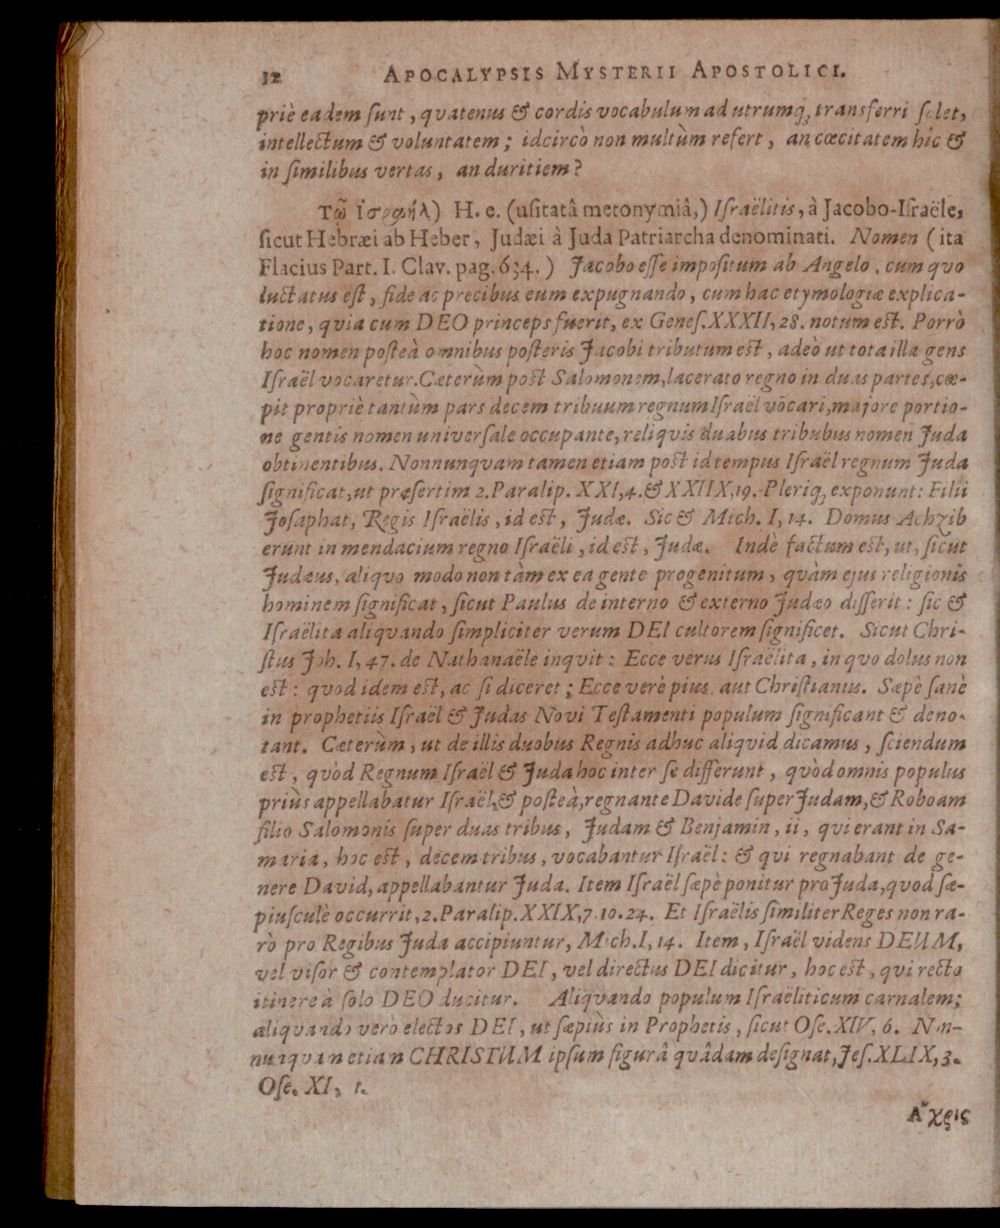 12 APOCALYPSIS MYSTERII APOSTOLICI.
priè eadem ſunt, qvatenus & cordis vocabulum ad utrumq; transferri ſolet,
intellectum & voluntatem; idcircò non multùm refert, an cœcitatem hîc &
in ſimilibus vertas, an duritiem?
Τῶ ἰσραήλ) H. e. (uſitatâ metonymiâ,) Iſraëlitis, à Jacobo-Iſraële,
ſicut Hebræi ab Heber, Judæi à Juda Patriarcha denominati. Nomen (ita
Flacius Part. I. Clav. pag. 634.) Jacobo eſſe impoſitum ab Angelo, cum quo
luctatus eſt, fide ac precibus eum expugnando, cum hac etymologiæ explica-
tione, qvia cum DEO princeps fuerit, ex Geneſ. XXXII, 28. notum eſt. Porrò
hoc nomen poſteà omnibus poſteris Jacobi tributum eſt, adeò ut tota illa gens
Iſraël vocaretur. Cæterùm poſt Salomonem, lacerato regno in duas partes, cœ-
pit propriè tantùm pars decem tribuum regnum Iſraël vocari, majore portio-
ne gentis nomen univerſale occupante, reliqvis duabus tribubus nomen Juda
obtinentibus. Nonnunqvam tamen etiam poſt id tempus Iſraël regnum Juda
ſignificat, ut præſertim 2. Paralip. XXI, 4. & XXIIX, 19. Pleriq; exponunt: Filii
Joſaphat, Regis Iſraëlis, id eſt, Judæ. Sic & Mich. I, 14. Domus Achzib
erunt in mendacium regno Iſraëli, id eſt, Judæ. Indè factum eſt, ut, ſicut
Judæus, aliqvo modo non tàm ex ea gente progenitum, quàm ejus religionis
hominem ſignificat, ſicut Paulus de interno & externo Judæo diſſerit: ſic &
Iſraëlita aliqvando ſimpliciter verum DEI cultorem ſignificet. Sicut Chri-
ſtus Joh. I, 47. de Nathanaële inqvit: Ecce verus Iſraëlita, in qvo dolus non
eſt: quod idem eſt, ac ſi diceret; Ecce verè pius, aut Chriſtianus. Sæpè ſanè
in prophetiis Iſraël & Judas Novi Teſtamenti populum ſignificant & deno-
tant. Cæterùm, ut de illis duobus Regnis adhuc aliqvid dicamus, ſciendum
eſt, qvòd Regnum Iſraël & Juda hoc inter ſe differunt, qvòd omnis populus
priùs appellabatur Iſraël, & poſteà, regnante Davide ſuper Judam, & Roboam
filio Salomonis ſuper duas tribus, Judam & Benjamin, ii, qvi erant in Sa-
maria, hoc eſt, decem tribus, vocabantur Iſraël: & qvi regnabant de ge-
nere David, appellabantur Juda. Item Iſraël ſæpè ponitur pro Juda, quod ſæ-
piuſculè occurrit, 2. Paralip. XXIX, 7. 10. 24. Et Iſraëlis ſimiliter Reges non ra-
rò pro Regibus Juda accipiuntur, Mich. I, 14. Item, Iſraël videns DEUM,
vel viſor & contemplator DEI, vel directus DEI dicitur, hoc eſt, qvi recto
itinere à ſolo DEO ducitur. Aliqvando populum Iſraëliticum carnalem;
aliqvando verò electos DEI, ut ſæpiùs in Prophetis, ſicut Oſe. XIV, 6. Non-
nunqvam etiam CHRISTUM ipſum figurâ qvâdam deſignat, Jeſ. XLIX, 3.
Oſe. XI, 1.
Ἄχρις